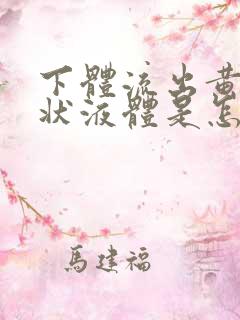 下體流出黃
狀液體是怎
馬建福